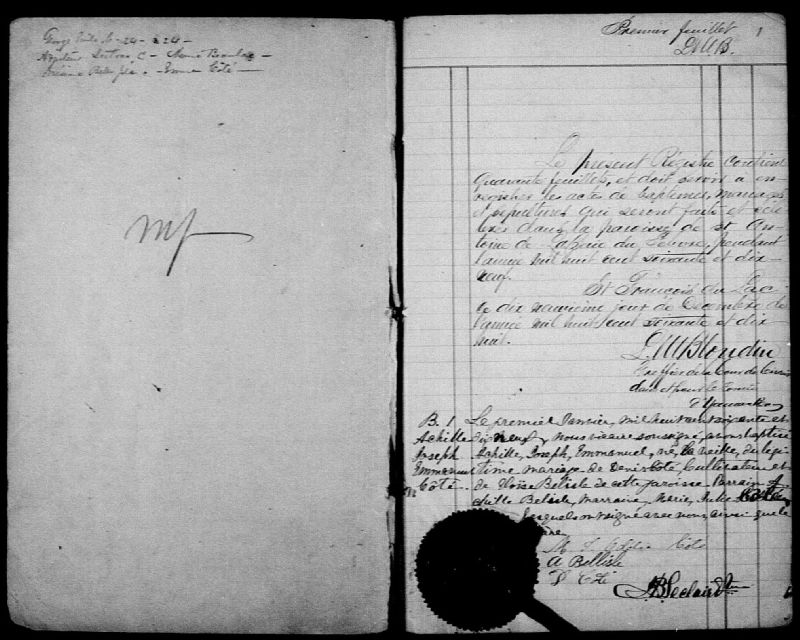 mf
Premier feuillet 1
L.M.B.
Le présent Régistre contient
Quarante feuillets, et doit servir à en-
registrer les actes de baptêmes, mariages
et sépultures qui seront faits et célé-
brés dans la paroisse de St An-
toine de La Baie du Febvre, pendant
l'année mil huit cent soixante et dix-
neuf.
St François du Lac
ce dix neuvième jour de Décembre de
l'année mil huit cent soixante et dix
huit.
L. M. Blondin
Greffier de la Cour de Circuit
dans et pour le Comté
d'Yamaska
B. 1
Achille
Joseph
Emmanuel
Côté
Le premier Janvier, mil huit cent soixante et
dix neuf, nous vicaire soussigné, avons baptisé
Achille, Joseph, Emmanuel, né, la veille, du légi-
time mariage de Denis Côté Cultivateur et
de Eloïse Belisle de cette paroisse. Parrain A-
chille Belisle, Marraine, Marie, Julie
lesquels ont signé avec nous, ainsi que le
père
Côté
A Bellisle
D Côté
J.B. Leclair Ptre